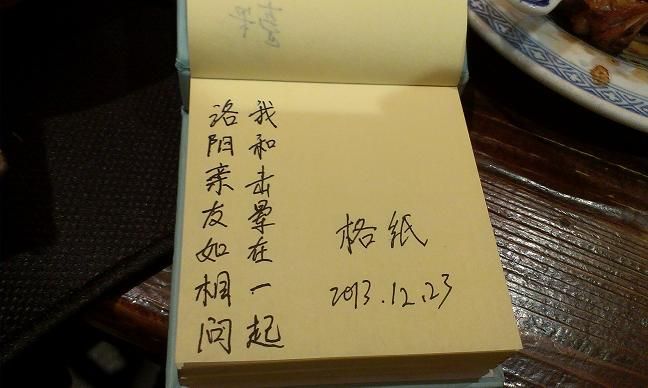 洛阳亲友如相问
我和击晕在一起
格纸
2013.12.23